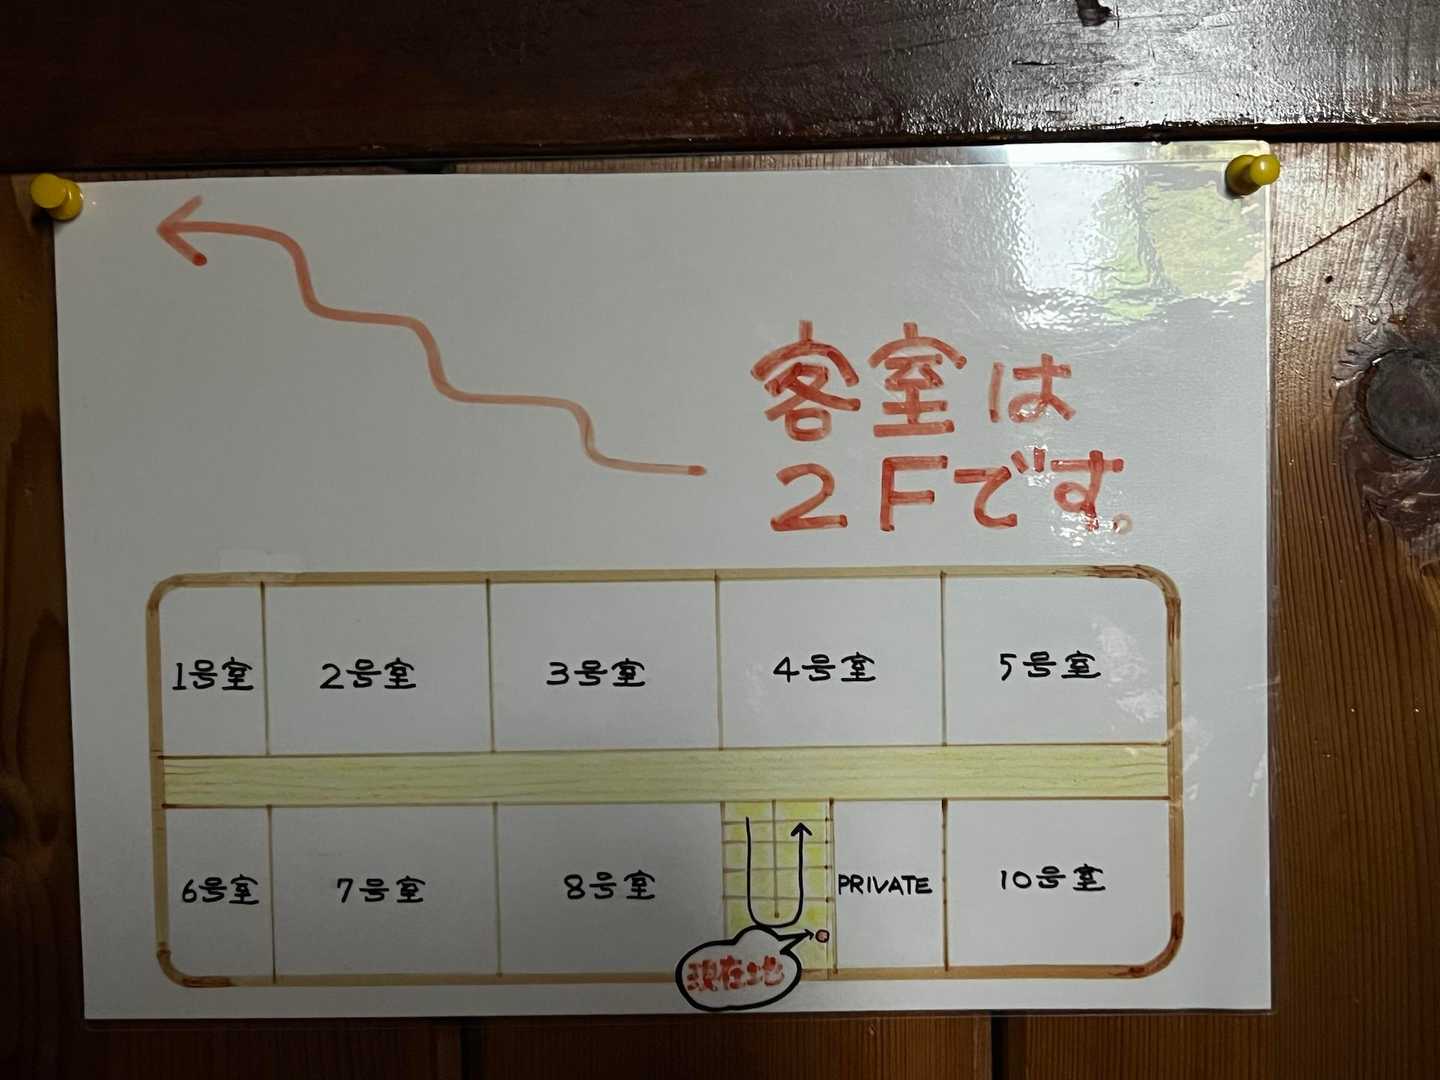 客室は
2Fです。
1号室 2号室 3号室 4号室 5号室
6号室 7号室 8号室 PRIVATE 10号室
現在地